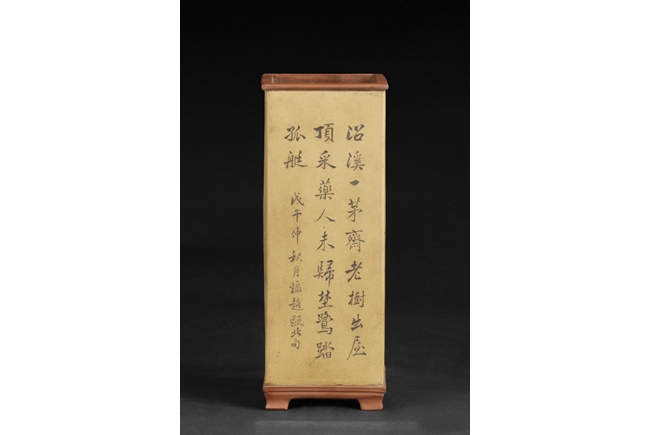 沿溪一茅齊老樹出屋
頂采藥人未歸埜鷺踏
孤艇
戊午仲秋月錄趙甌北句